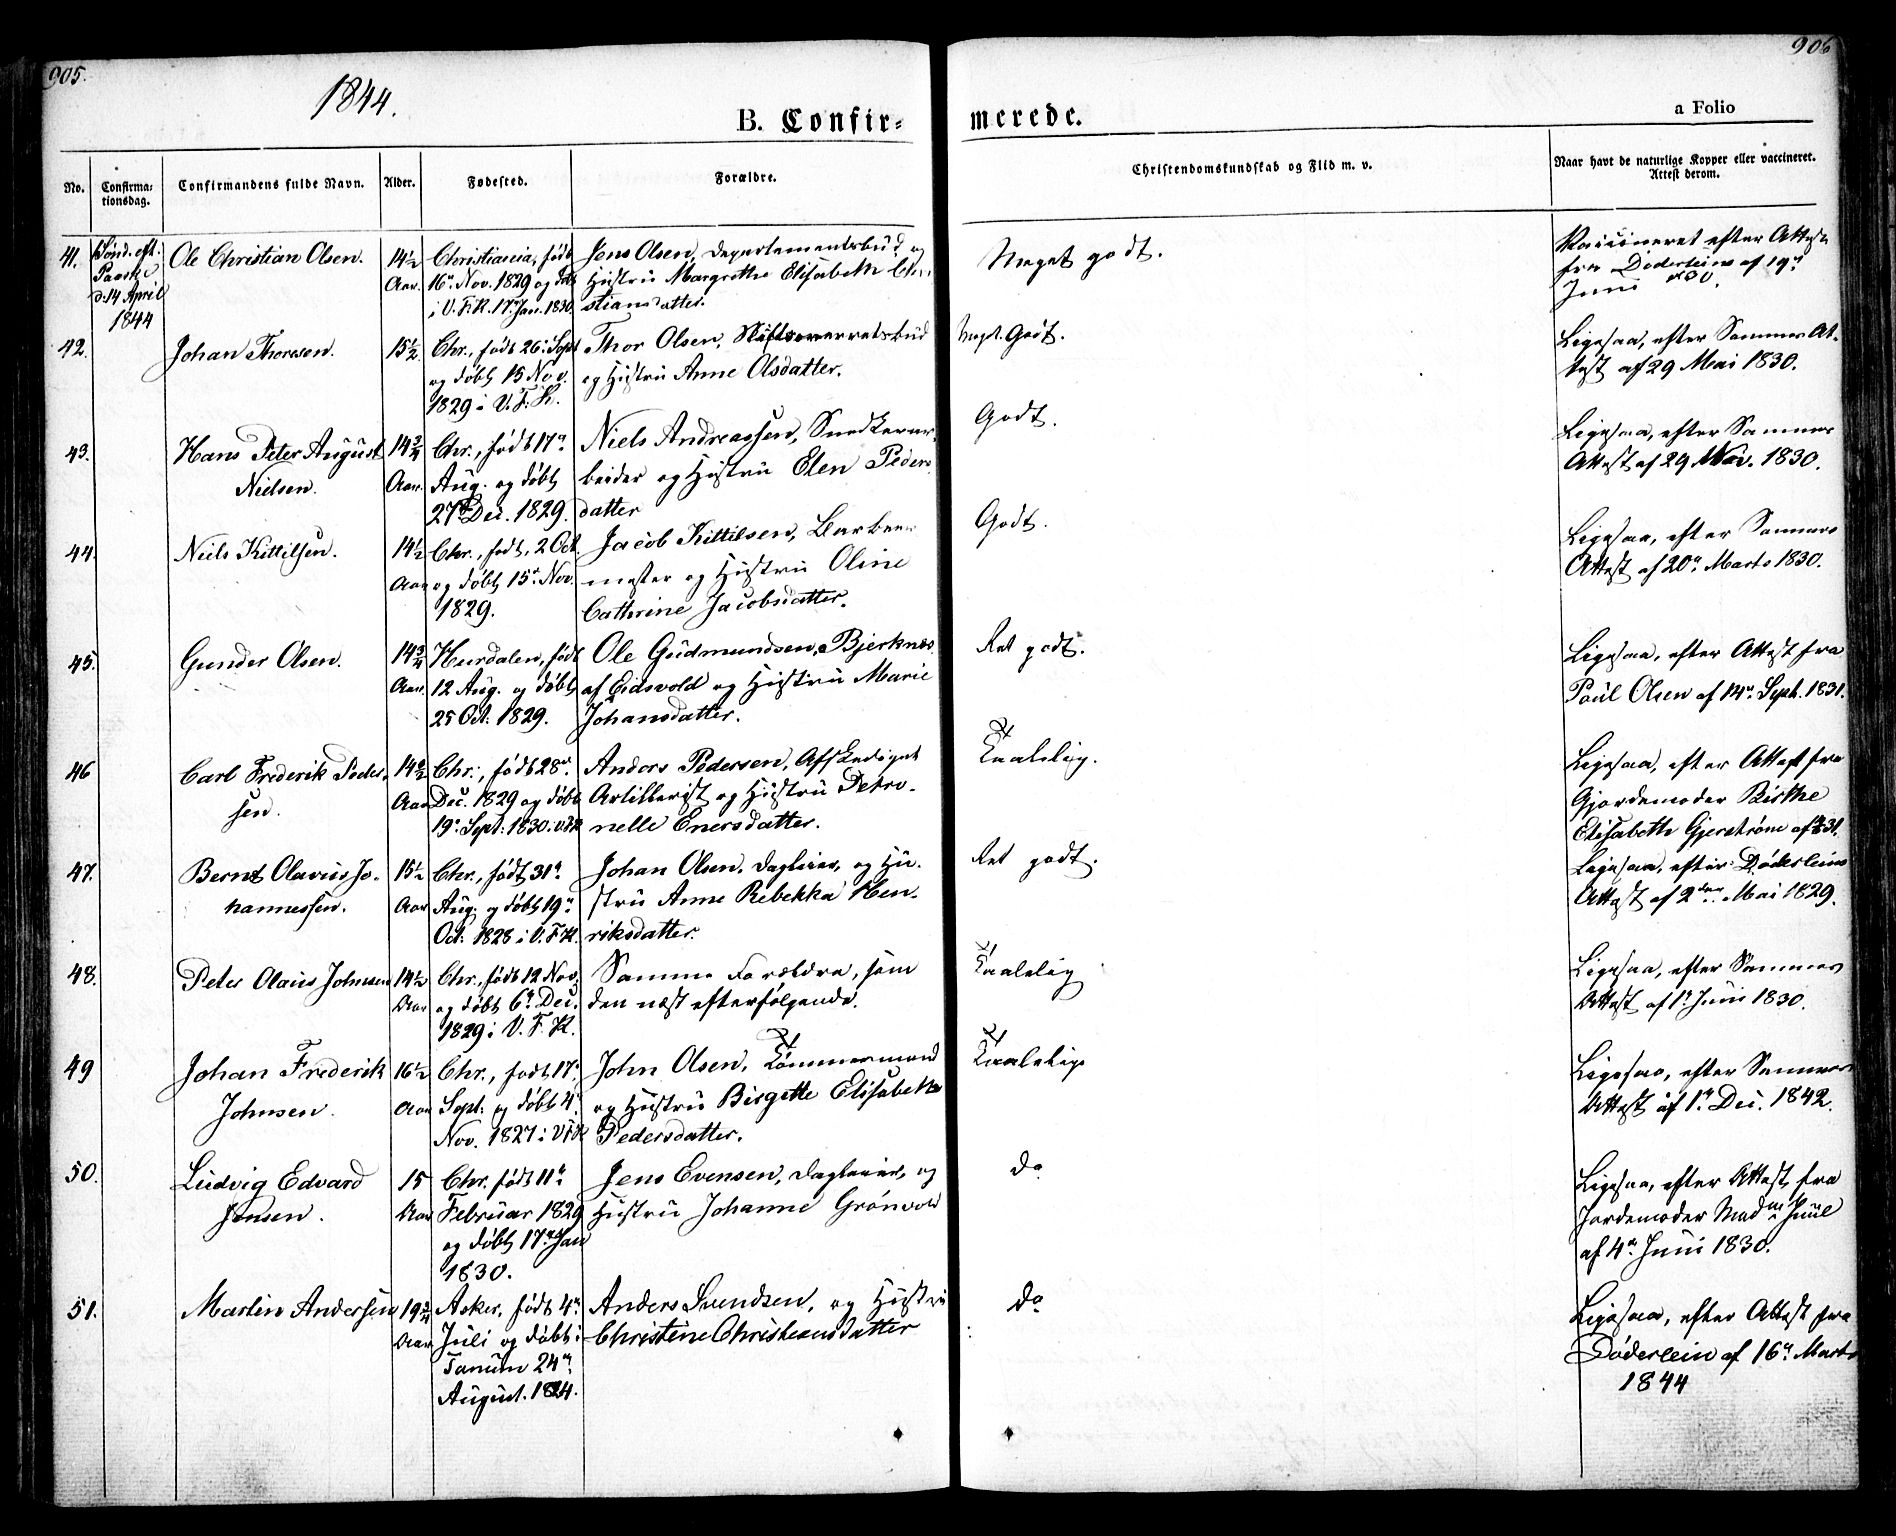 905.
906
1844.
B. Confir-
merede.
a Folio
No.
Confirma-
tionsdag.
Confirmandens fulde Navn.
Alder.
Fødested.
Forældre.
Christendomskundskab og Flid m. v.
Naar havt de naturlige Kopper eller vaccineret.
Attest derom.
41.
Sønd. eft.
Paaske
d. 14 April
1844
Ole Christian Olsen.
14½
Aar.
Christiania, født
16de Nov. 1829 og døbt
i V. F. K. 17de Jan. 1830.
Jens Olsen, Departementsbud og
Hustru Margrethe Elisabeth Chri-
stiansdatter.
Meget godt.
Vaccineret efter Attest
fra Døderlein af 19de
Juni 1830.
42.
Johan Thoresen.
15½
Chr., født 26. Sept
og døbt 15 Nov.
1829 i V. F. K.
Thor Olsen, Stiftsoverretsbud
og Hustru Anne Olsdatter.
Meget Godt.
Ligesaa, efter Sammes At-
test af 29 Mai 1830.
43.
Hans Peter August
Nielsen.
14¾
Aar.
Chr., født 17de
Aug. og døbt
27de Dec. 1829.
Niels Andreassen, Snedkerar-
beider og Hustru Elen Peders-
datter
Godt.
Ligesaa, efter Sammes
Attest af 29 Nov. 1830.
44.
Niels Kittilsen.
14½
Aar
Chr., født, 2 Oct.
og døbt 15de Nov.
1829.
Jacob Kittilsen, Barkeer-
mester og Hustru Oline
Cathrine Jacobsdatter.
Godt.
Ligesaa, efter Sammes
Attest af 20de Marts 1830.
45.
Gunder Olsen.
14¾
Aar.
Hurdalen, født
12 Aug. og døbt
25 Oct. 1829.
Ole Gudmundsen, Bjerknes
af Eidsvold og Hustru Marie
Johansdatter.
Ret godt.
Ligesaa, efter Attest fra
Poul Olsen af 14de Sept. 1831.
46
Carl Frederik Peder-
sen.
14½
Aar
Chr., født 28de
Dec. 1829 og døbt
19de Sept. 1830. V F K
Anders Pedersen, Afskediget
Artillerist og Hustru Petro-
nelle Enersdatter.
Taalelig.
Ligesaa, efter Attest fra
Gjordemoder Birthe
Elisabeth Gjerstrøm af 31.
47.
Bernt Olavus Jo-
hannessen.
15½
Aar
Chr., født 31te
Aug. og døbt 19de
Oct. 1828 i V. F K.
Johan Olsen, Dagleier, og Hu-
stru Anne Rebekka Hen-
riksdatter.
Ret godt.
Ligesaa, efter Døderleins
Attest af 2den Mai 1829.
48.
Peter Olaus Johnsen
14½
Aar
Chr., født 12 Nov.
og døbt 6te Dec.
1829 i V. F. K.
Samme Forældre, som
den næst efterfølgende.
Taalelig
Ligesaa, efter Sammes
Attest af 1te Juni 1830.
49
Johan Frederik
Johnsen.
16½
Aar
Chr., født 17.
Sept. og døbt 4.
Nov. 1827 i V F K
John Olsen, Tømmermand
og Hustru Birgitte Elisabeth
Pedersdatter.
Taalelig
Ligesaa, efter Sammes
Attest af 1te Dec. 1842.
50.
Ludvig Edvard
Jensen.
15
Aar
Chr. født 11te
Februar 1829
og døbt 17de Jan
1830.
Jens Evensen, Dagleier, og
Hustru Johanne Grønvold
do
Ligesaa, efter Attest fra
Jordemoder Madme Juul
af 4de Juni 1830.
51.
Martin Andersen
19¾
Aar
Asker, født 4de
Juli og døbt i
Tanum 24de
August. 1824.
Anders Svendsen, og Hustru
Christine Christiansdatter
do
Ligesaa, efter Attest fra
Døderlein af 16de Marts
1844